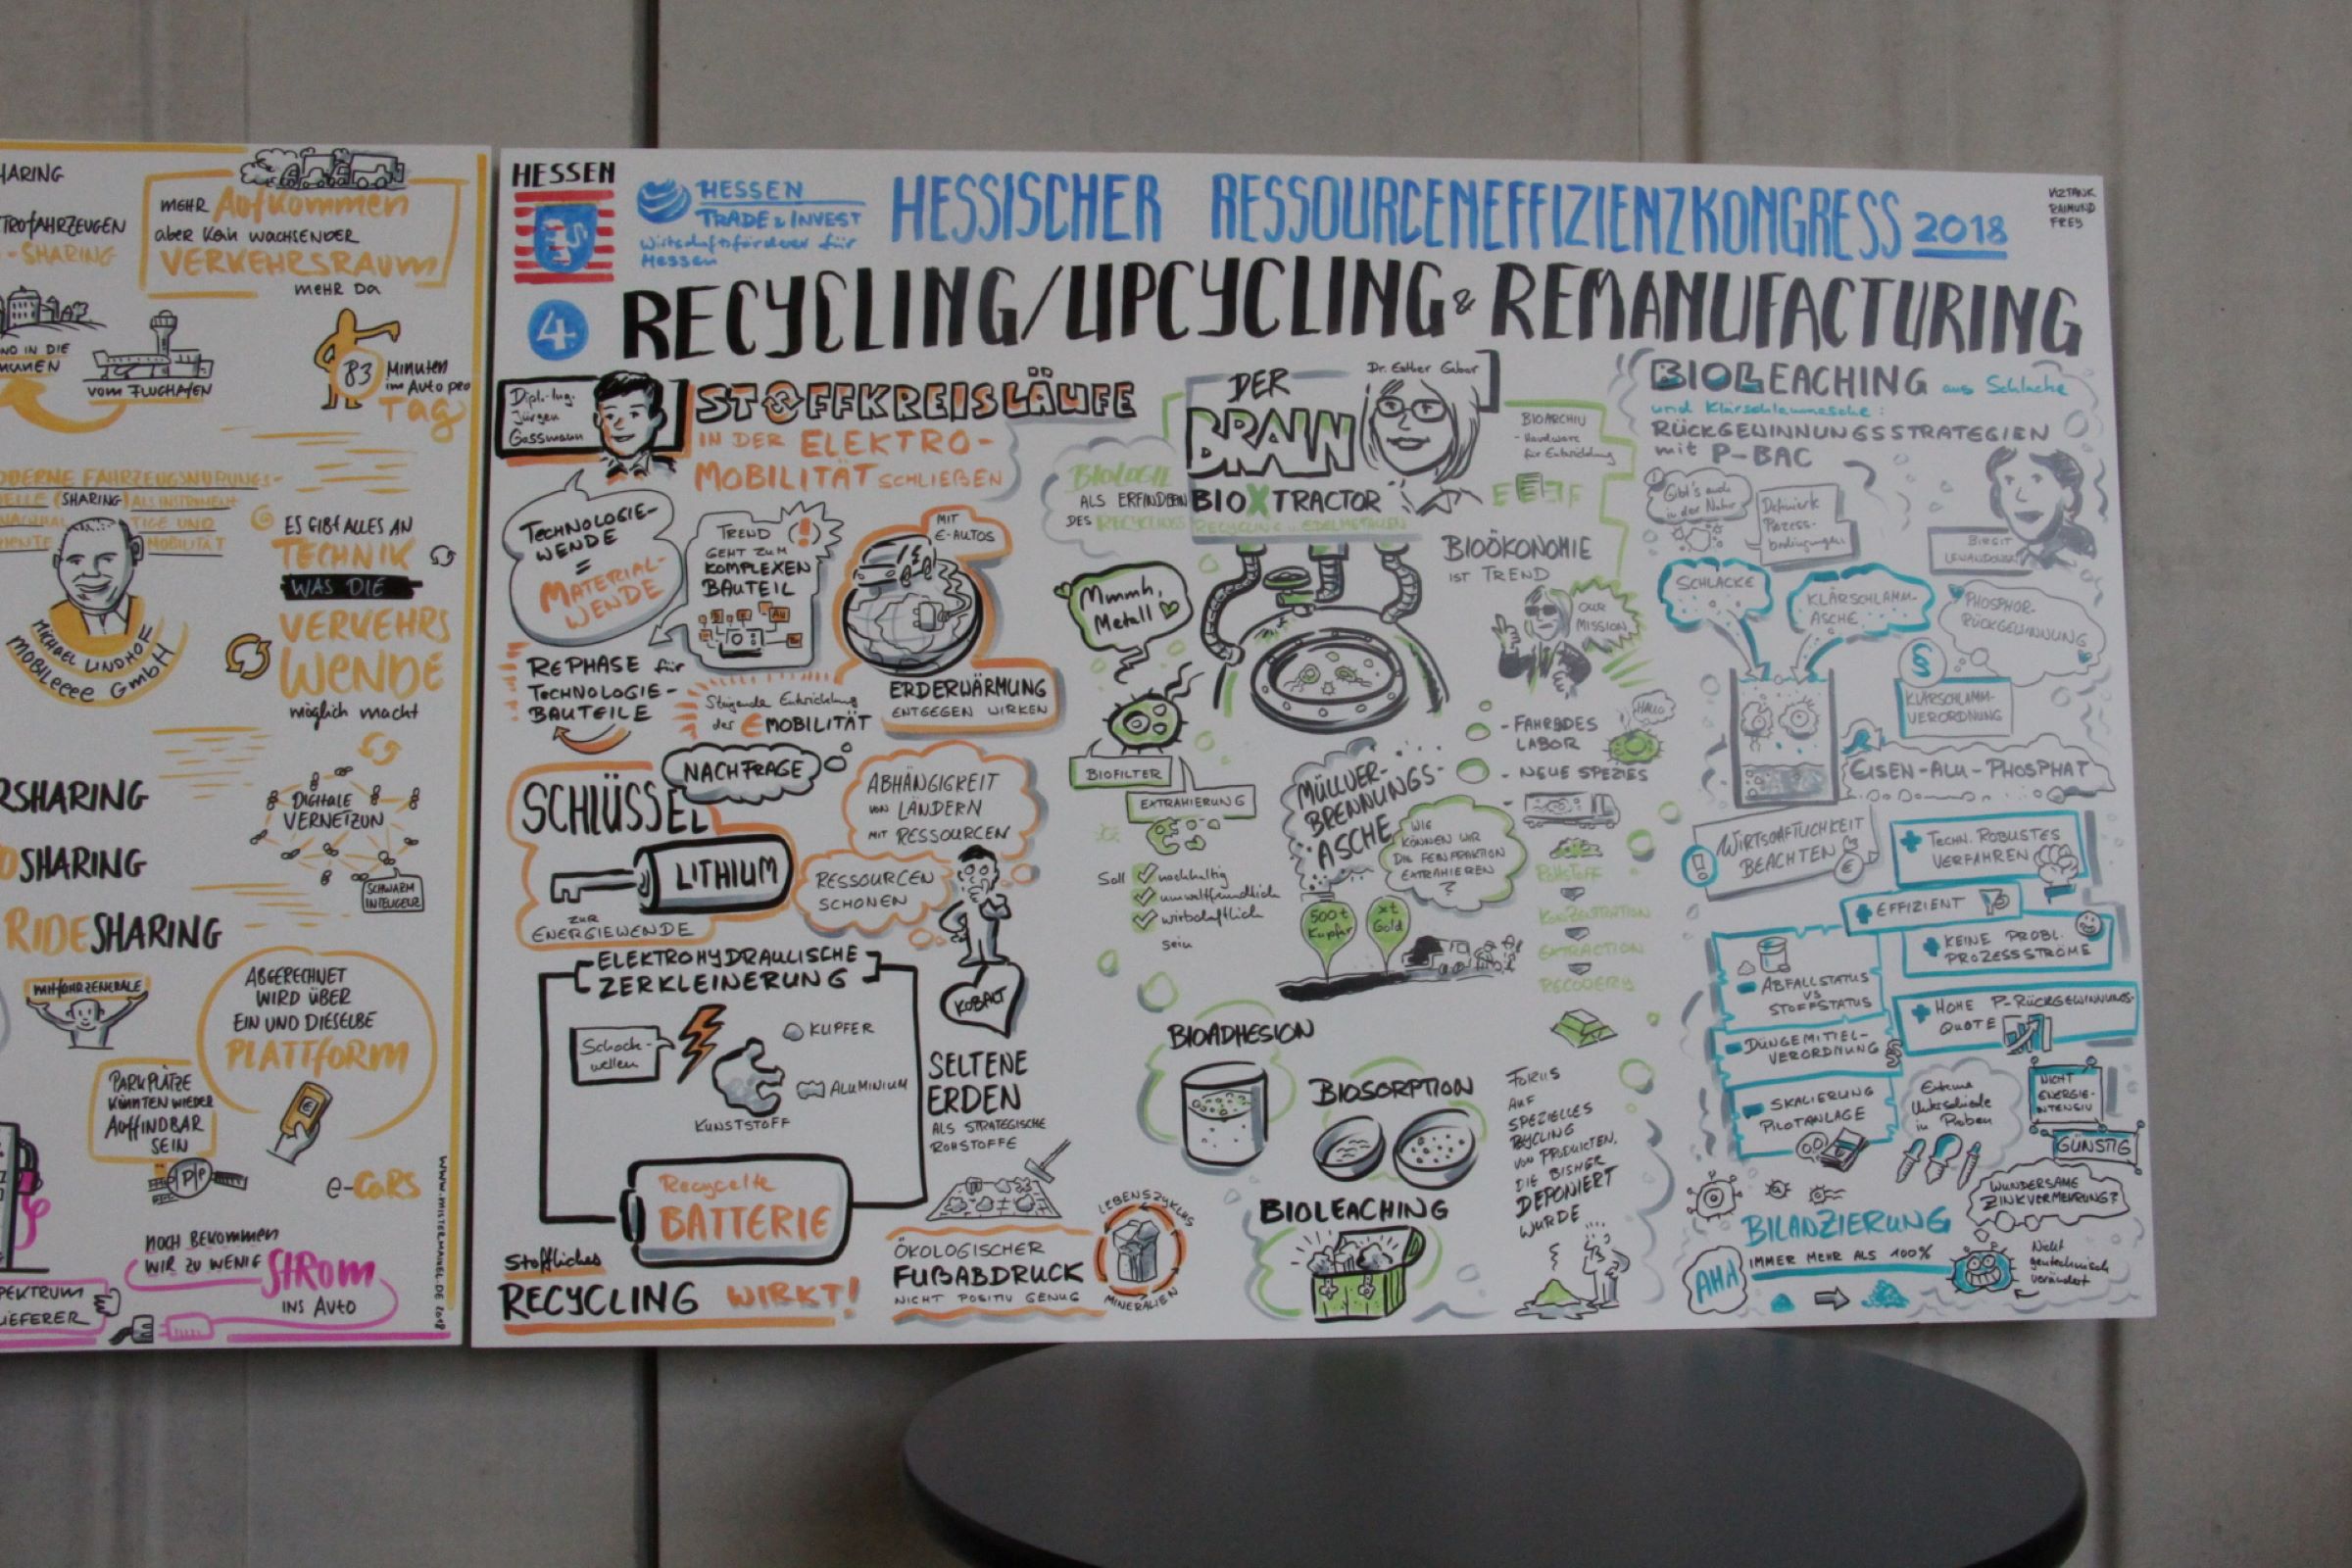 HARING
TROFAHRZEUGEN
-SHARING
MEHR Aufkommen
aber kein wachsender
VERKEHRSRAUM
mehr da
ND IN DIE
MUNEN
vom FLUGHAFEN
83
Minuten
im Auto pro
Tag
(SHARING) ALS INSTRUMENT
MOBILITÄT
MICHAEL LINDHOF
MOBILeeee GmbH
ES GIBT ALLES AN
TECHNIK
WAS DIE
VERKEHRS
WENDE
möglich macht
RSHARING
SHARING
RIDESHARING
DIGITALE
VERNETZUN
SCHWARM
INTELIGENZ
MITFAHRZENTRALE
ABGERECHNET
WIRD ÜBER
EIN UND DIESELBE
PLATTFORM
€
PARKPLÄTZE
KÖNNTEN WIEDER
AUFFINDBAR
SEIN
P/P
e-CARS
NOCH BEKOMMEN
WIR ZU WENIG STROM
INS AUTO
PEKTRUM
IEFERER
WWW.MISTERMANEL.DE 2018
HESSEN
HESSEN
TRADE & INVEST
Wirtschaftsförderer für
Hessen
HESSISCHER RESSOURCENEFFIZIENZKONGRESS 2018
VIZTANK
RAIMUND
FREY
4.
RECYCLING/UPCYCLING & REMANUFACTURING
Dipl.-Ing.
Jürgen
Gassmann
STOFFKREISLÄUFE
IN DER ELEKTRO-
MOBILITÄT SCHLIEßEN
TECHNOLOGIE-
WENDE
=
MATERIAL-
WENDE
TREND
GEHT ZUM
KOMPLEXEN
BAUTEIL
!
MIT
E-AUTOS
REPHASE für
TECHNOLOGIE-
BAUTEILE
Steigende Entwicklung
der EMOBILITÄT
ERDERWÄRMUNG
ENTGEGEN WIRKEN
SCHLÜSSEL
NACHFRAGE
LITHIUM
ZUR
ENERGIEWENDE
ABHÄNGIGKEIT
von LÄNDERN
MIT RESSOURCEN
RESSOURCEN
SCHONEN
KOBALT
ELEKTROHYDRAULISCHE
ZERKLEINERUNG
Schock-
wellen
KUPFER
ALUMINIUM
KUNSTSTOFF
Recycelte
BATTERIE
Stoffliches
RECYCLING WIRKT!
SELTENE
ERDEN
ALS STRATEGISCHE
ROHSTOFFE
ÖKOLOGISCHER
FUßABDRUCK
NICHT POSITIV GENUG
LEBENSZYKLUS
MINERALIEN
DER
BRAIN
BIOXTRACTOR
Dr. Esther Gabor
BIOLOGIE
ALS ERFINDERIN
DES RECYCLINGS
BIOARCHIV
- Hardware
für Entwicklung
BIOÖKONOMIE
IST TREND
OUR
MISSION
Mmmh,
Metall
BIOFILTER
EXTRAHIERUNG
Soll
nachhaltig
umweltfreundlich
wirtschaftlich
sein
MÜLLVER-
BRENNUNGS-
ASCHE
WIE
KÖNNEN WIR
DIE FEINFRAKTION
EXTRAHIEREN
?
500t
Kupfer
Gold
- FAHRENDES
LABOR
- NEUE SPEZIES
HALLO
ROHSTOFF
KONZENTRATION
EXTRACTION
RECOVERY
BIOADHESION
BIOSORPTION
BIOLEACHING
FOKUS
AUF
SPEZIELLES
RECYCLING
VON PRODUKTEN,
DIE BISHER
DEPONIERT
WURDE
BIOLEACHING aus Schlacke
und Klärschlammasche:
RÜCKGEWINNUNGSSTRATEGIEN
mit P-BAC
Gibt's auch
in der Natur
Definierte
Prozess-
bedingungen
BIRGIT
LEWANDOWSKI
SCHLACKE
KLÄRSCHLAMM-
ASCHE
PHOSPHOR-
RÜCKGEWINNUNG
§
KLÄRSCHLAMM-
VERORDNUNG
EISEN-ALU-PHOSPHAT
! WIRTSCHAFTLICHKEIT
BEACHTEN
€
+ TECHN. ROBUSTES
VERFAHREN
+ EFFIZIENT
+ KEINE PROBL.
PROZESSSTRÖME
+ HOHE P-RÜCKGEWINNUNGS-
QUOTE
- ABFALLSTATUS
VS
STOFFSTATUS
- DÜNGEMITTEL-
VERORDNUNG §
- SKALIERUNG
PILOTANLAGE
Extreme
Unterschiede
in Proben
NICHT
ENERGIE-
INTENSIV
GÜNSTIG
WUNDERSAME
ZINKVERMEHRUNG?
BILANZIERUNG
IMMER MEHR ALS 100%
AHA
Nicht
gentechnisch
verändert